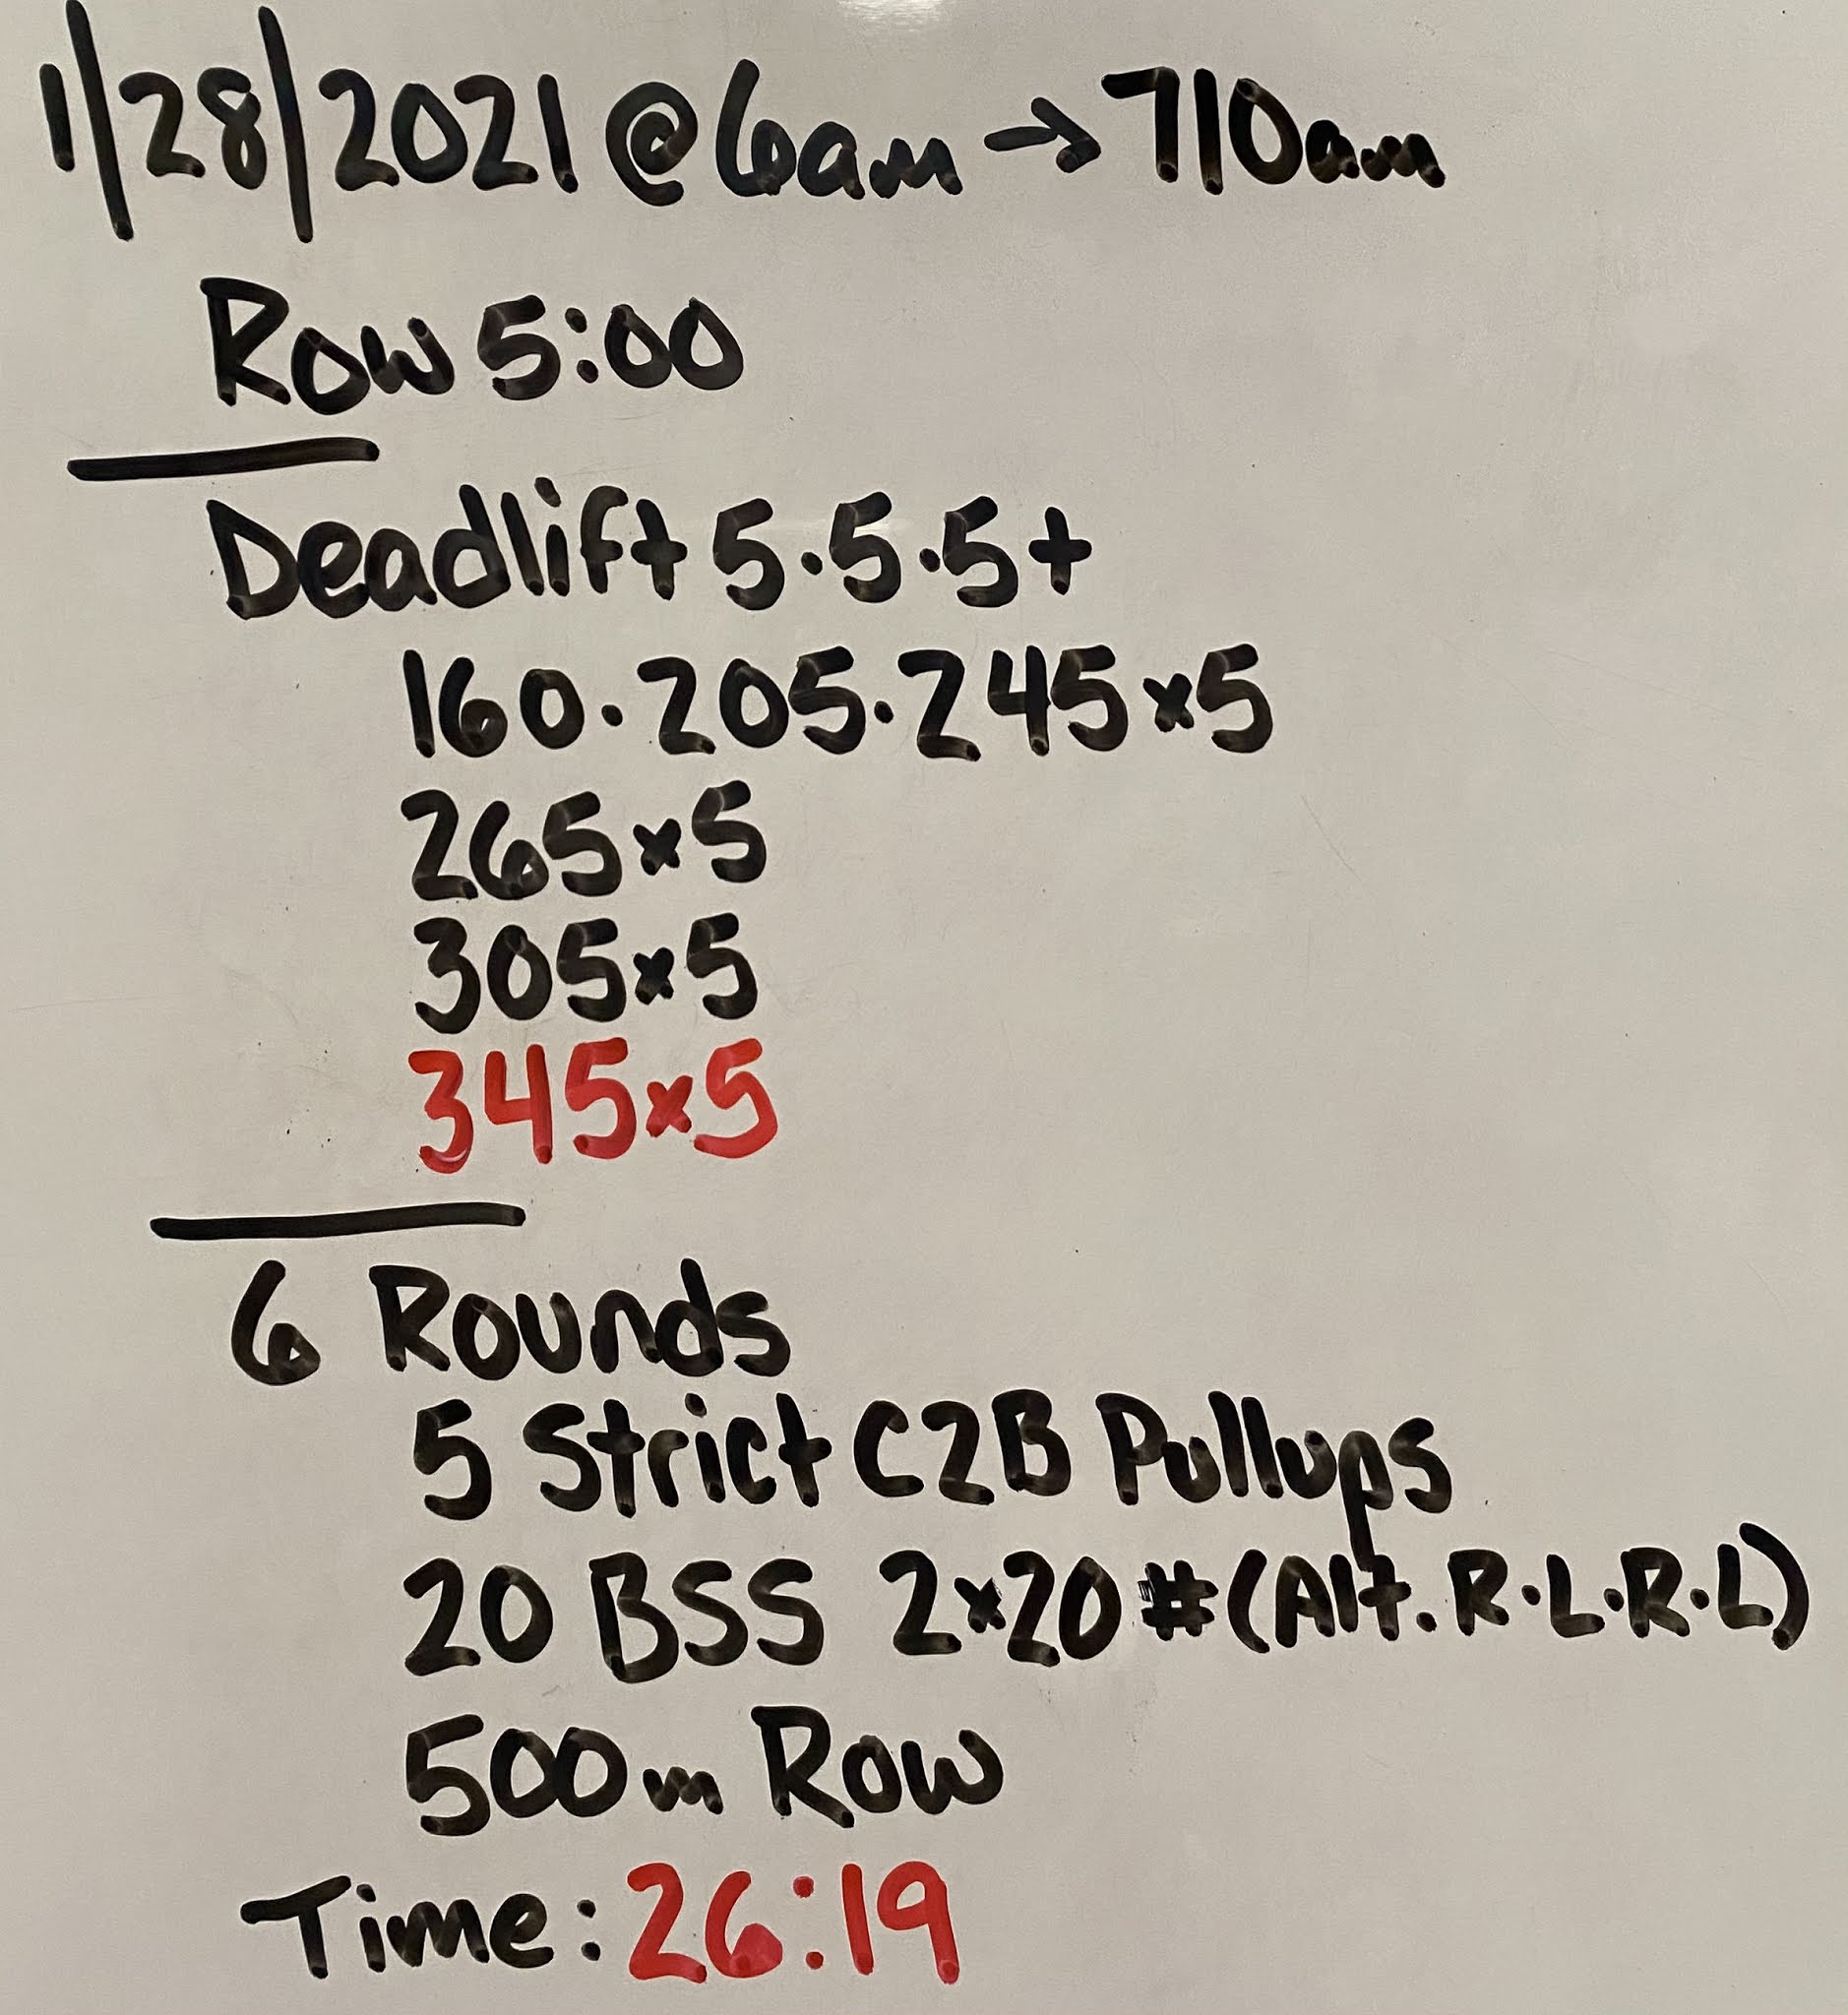 1/28/2021 @ 6am → 710am
Row 5:00
Deadlift 5·5·5+
160·205·245x5
265x5
305x5
345x5
6 Rounds
5 Strict C2B Pullups
20 BSS 2x20# (Alt. R·L·R·L)
500m Row
Time: 26:19